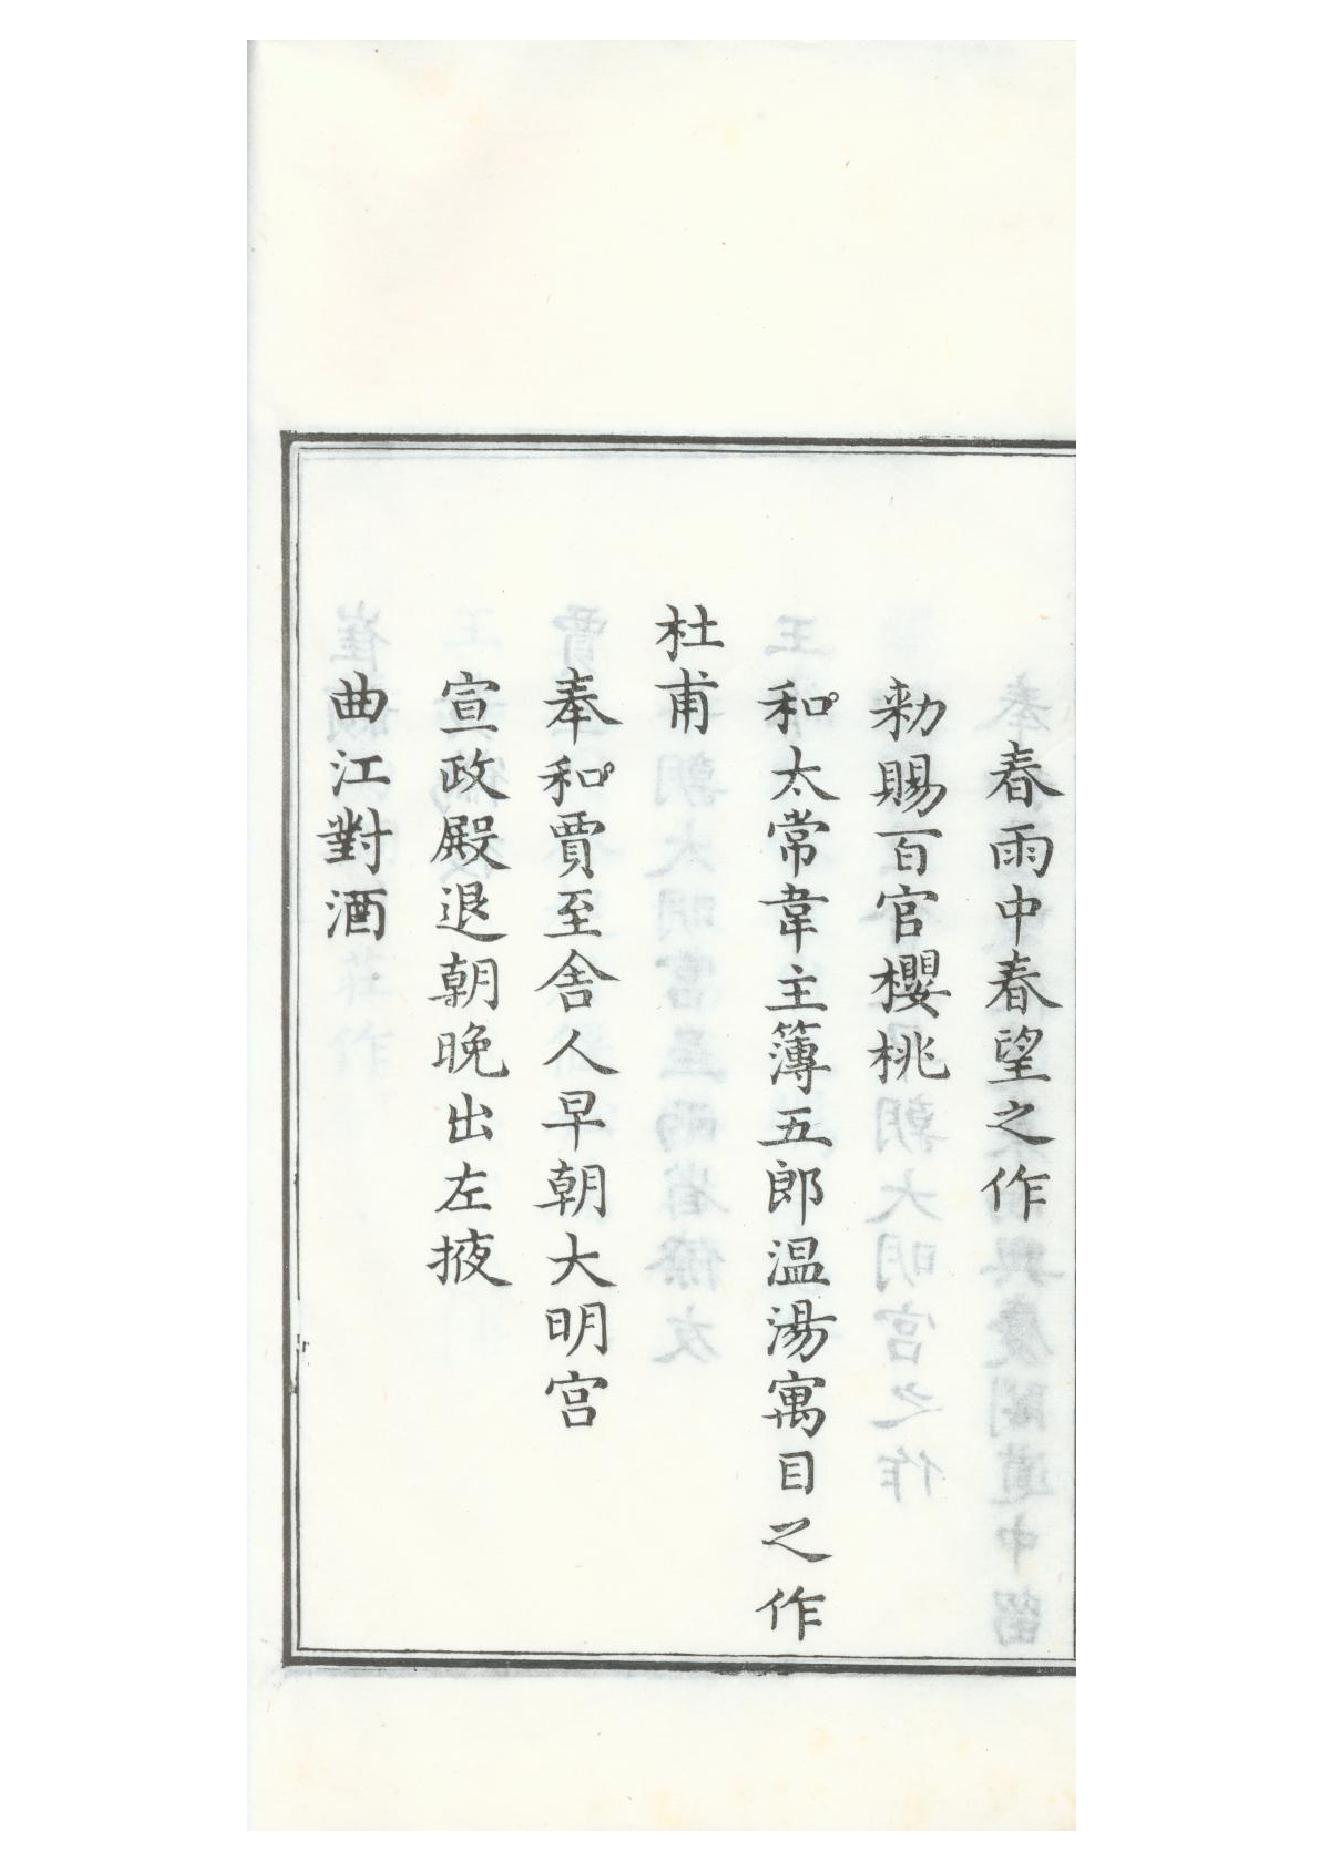 春雨中春望之作
勑賜百官櫻桃
和太常韋主簿五郎温湯寓目之作
杜甫
奉和賈至舍人早朝大明宫
宣政殿退朝晚出左掖
曲江對酒